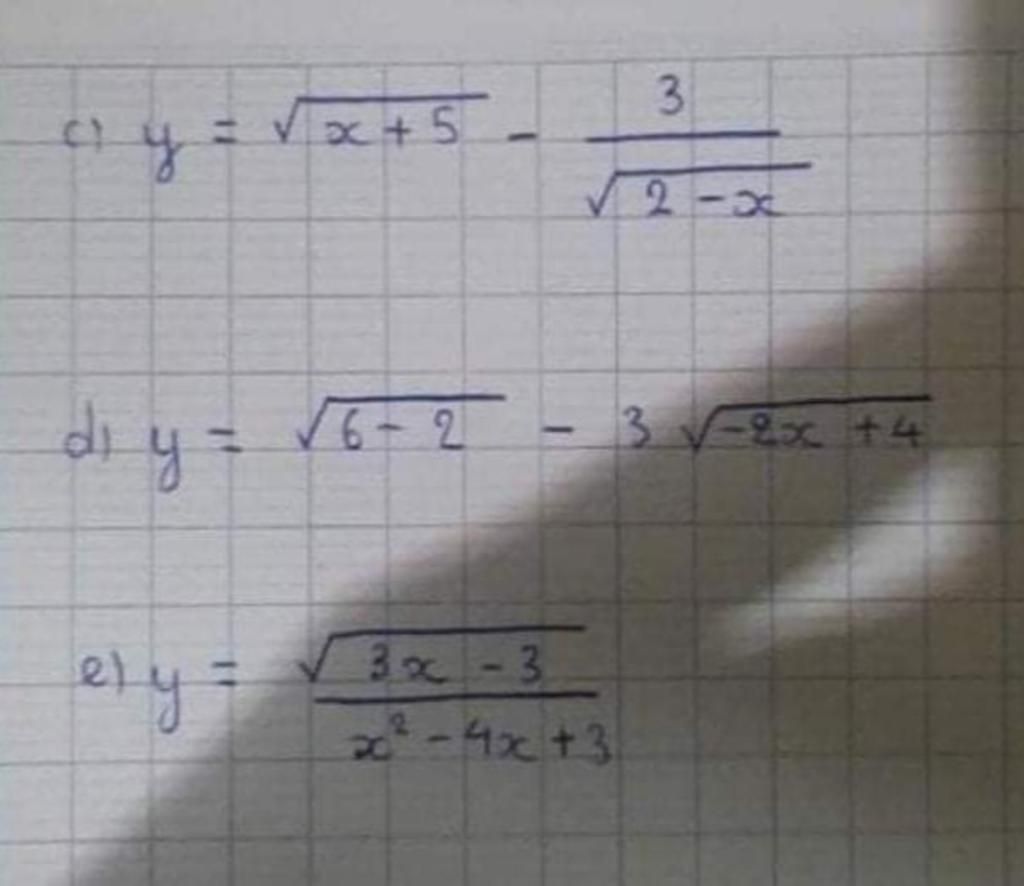 c) y = √(x + 5) - 3/√(2 - x)
d) y = √(6 - 2) - 3√(-2x + 4)
e) y = √(3x - 3)/(x² - 4x + 3)